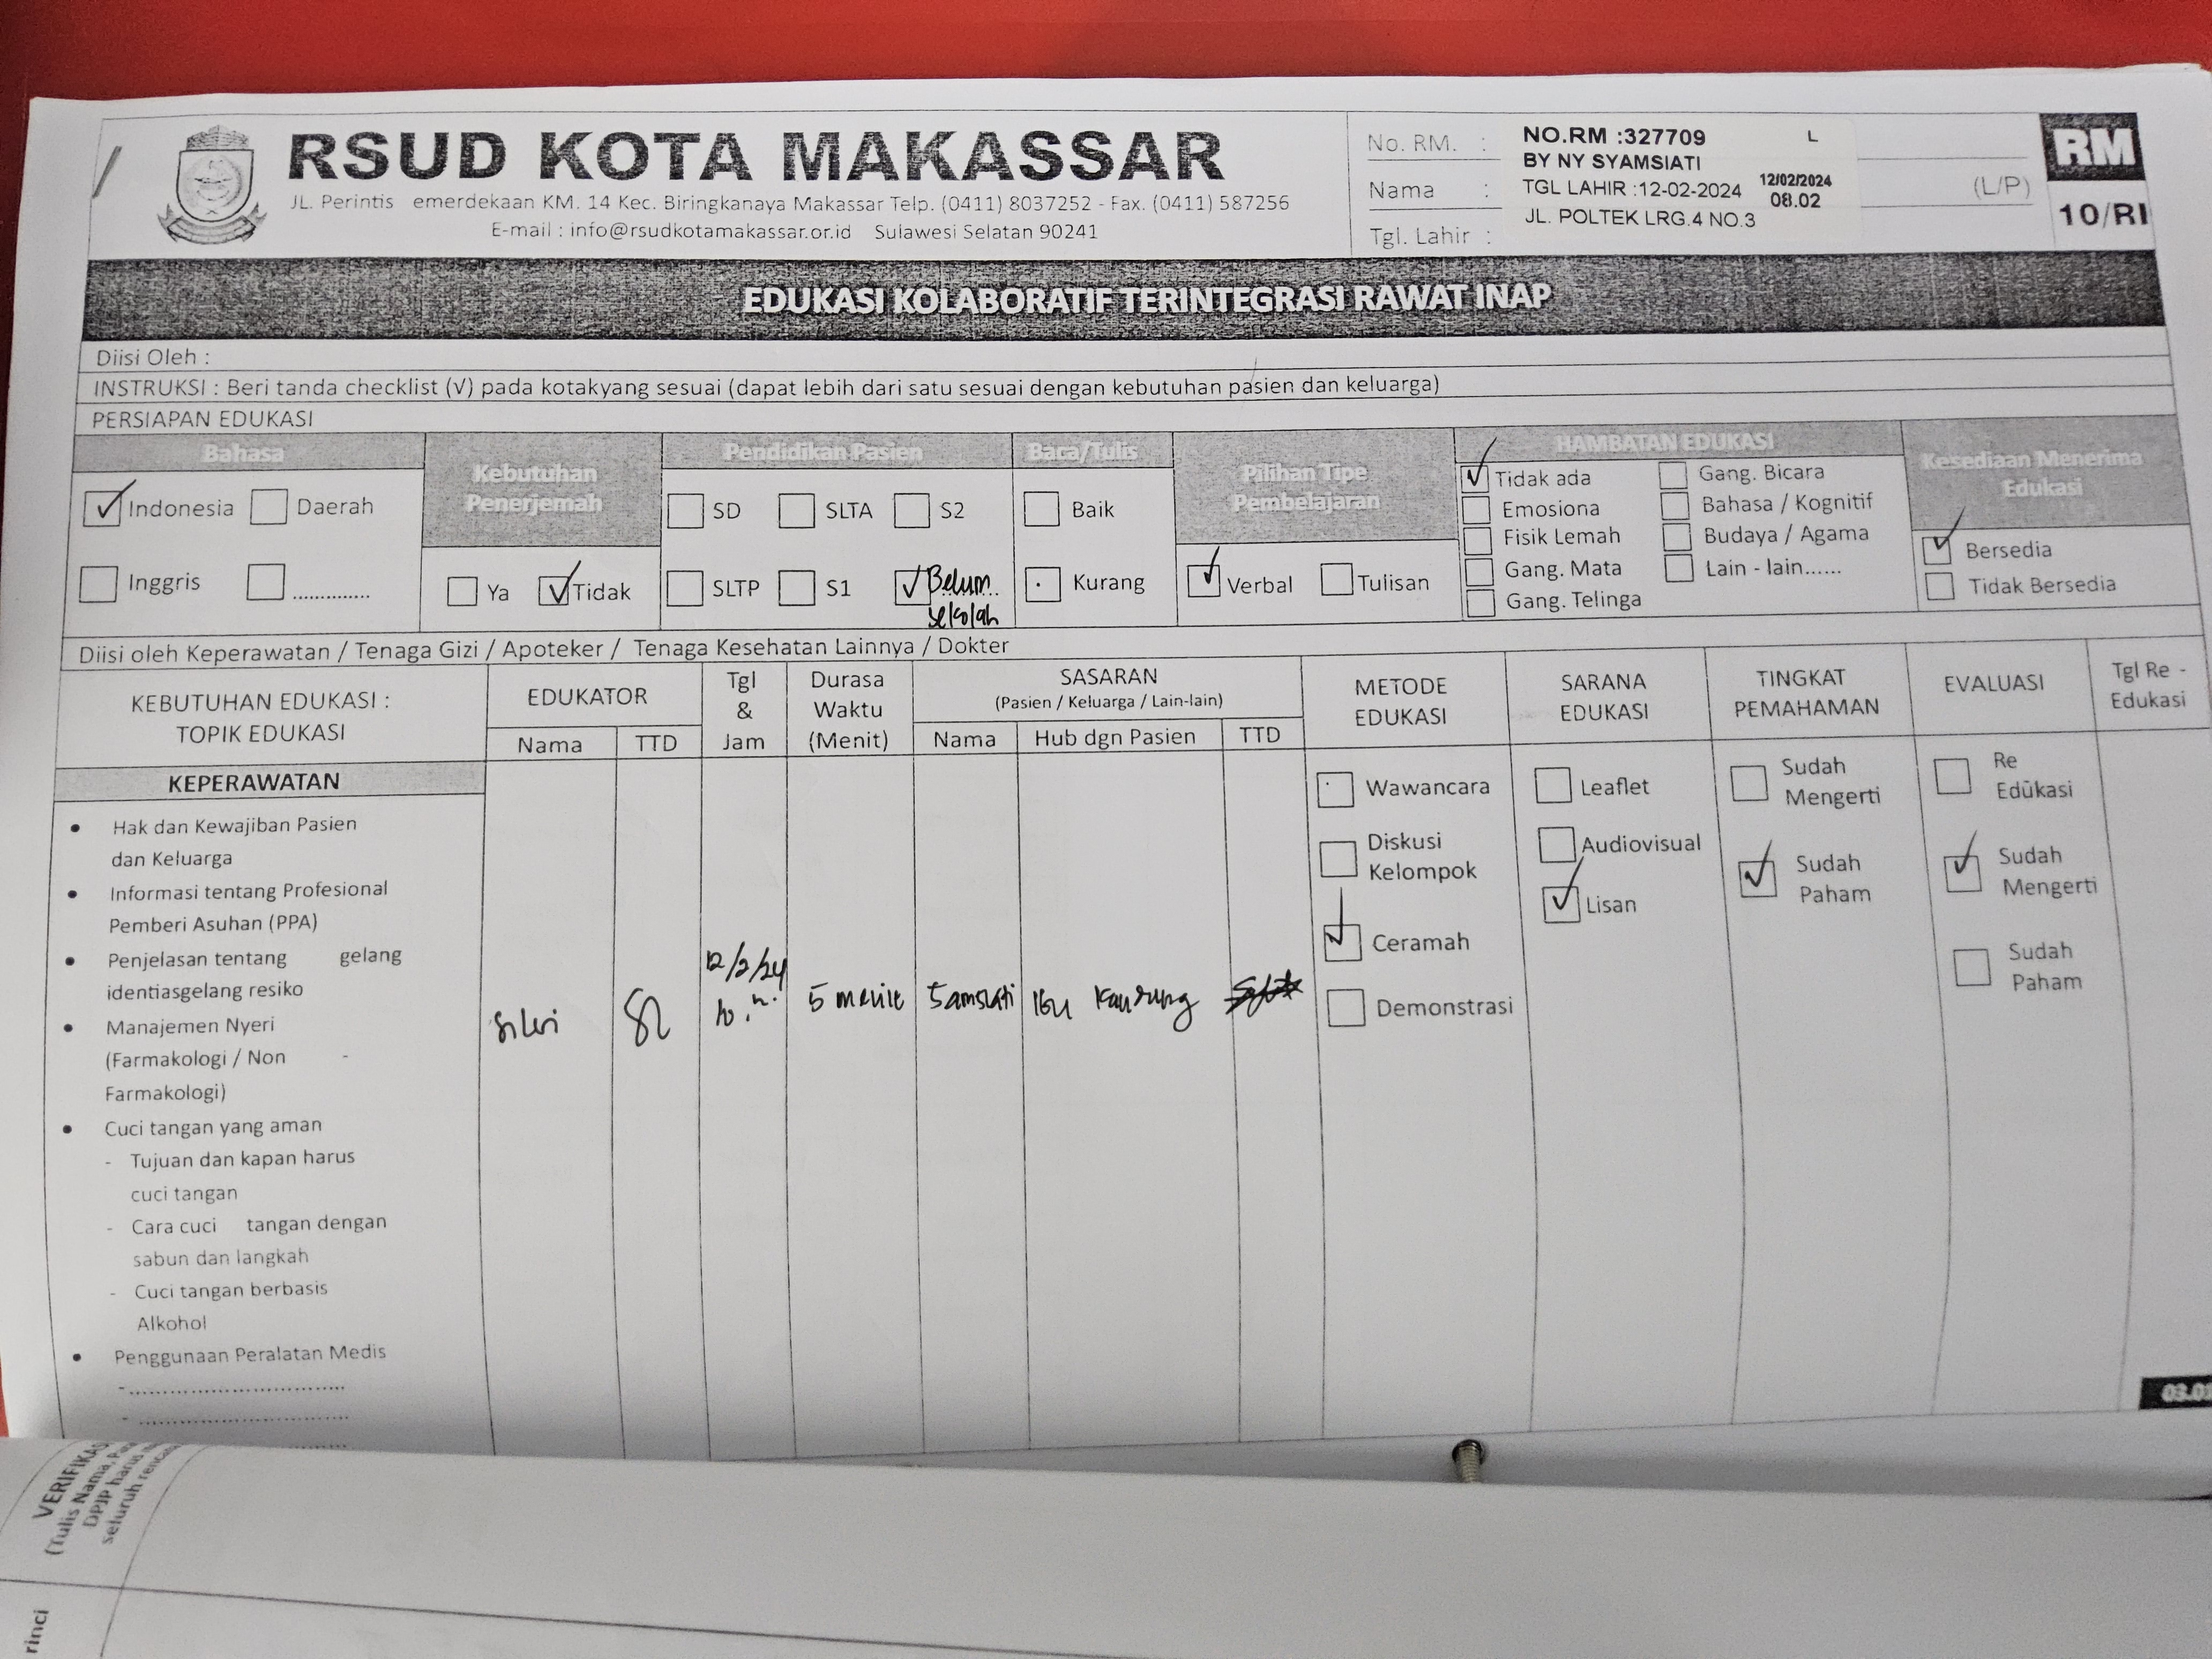 RSUD KOTA MAKASSAR
JL. Perintis emerdekaan KM. 14 Kec. Biringkanaya Makassar Telp. (0411) 8037252 - Fax. (0411) 587256
E-mail : info@rsudkotamakassar.or.id Sulawesi Selatan 90241
No. RM. :
Nama :
Tgl. Lahir :
NO.RM :327709 L
BY NY SYAMSIATI
TGL LAHIR :12-02-2024 12/02/2024 08.02
JL. POLTEK LRG.4 NO.3
(L/P)
RM
10/RI
EDUKASI KOLABORATIF TERINTEGRASI RAWAT INAP
Diisi Oleh :
INSTRUKSI : Beri tanda checklist (√) pada kotakyang sesuai (dapat lebih dari satu sesuai dengan kebutuhan pasien dan keluarga)
PERSIAPAN EDUKASI
Bahasa
Indonesia Daerah
Inggris ..............
Kebutuhan
Penerjemah
Ya Tidak
Pendidikan Pasien
SD SLTA S2
SLTP S1 Belum
sekolah
Baca/Tulis
Baik
Kurang
Pilihan Tipe
Pembelajaran
Verbal Tulisan
HAMBATAN EDUKASI
Tidak ada Gang. Bicara
Emosiona Bahasa / Kognitif
Fisik Lemah Budaya / Agama
Gang. Mata Lain - lain......
Gang. Telinga
Kesediaan Menerima
Edukasi
Bersedia
Tidak Bersedia
Diisi oleh Keperawatan / Tenaga Gizi / Apoteker / Tenaga Kesehatan Lainnya / Dokter
KEBUTUHAN EDUKASI :
TOPIK EDUKASI
EDUKATOR
Nama TTD
Tgl
&
Jam
Durasa
Waktu
(Menit)
SASARAN
(Pasien / Keluarga / Lain-lain)
Nama Hub dgn Pasien TTD
METODE
EDUKASI
SARANA
EDUKASI
TINGKAT
PEMAHAMAN
EVALUASI
Tgl Re -
Edukasi
KEPERAWATAN
• Hak dan Kewajiban Pasien
dan Keluarga
• Informasi tentang Profesional
Pemberi Asuhan (PPA)
• Penjelasan tentang gelang
identiasgelang resiko
• Manajemen Nyeri
(Farmakologi / Non -
Farmakologi)
• Cuci tangan yang aman
- Tujuan dan kapan harus
cuci tangan
- Cara cuci tangan dengan
sabun dan langkah
- Cuci tangan berbasis
Alkohol
• Penggunaan Peralatan Medis
-..................................
- .................................
12/2/24
5 menit
Samsiati
Ibu Kandung
Wawancara
Diskusi
Kelompok
Ceramah
Demonstrasi
Leaflet
Audiovisual
Lisan
Sudah
Mengerti
Sudah
Paham
Re
Edukasi
Sudah
Mengerti
Sudah
Paham
03.01
VERIFIKAS
(Tulis Nama, Par
DPJP harus
seluruh renc
rinci